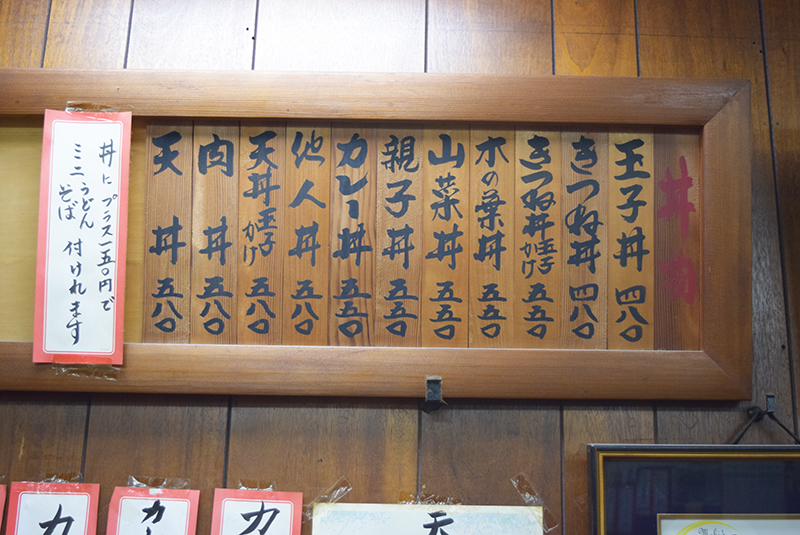 丼物
玉子丼 四八〇
きつね丼 四八〇
きつね丼玉子かけ 五五〇
木の葉丼 五五〇
山菜丼 五五〇
親子丼 五五〇
カレー丼 五五〇
他人丼 五八〇
天丼玉子かけ 五八〇
肉丼 五八〇
天丼 五八〇
丼に プラス一五〇円で
ミニ うどん そば 付けれます
カ
カー
カ
天